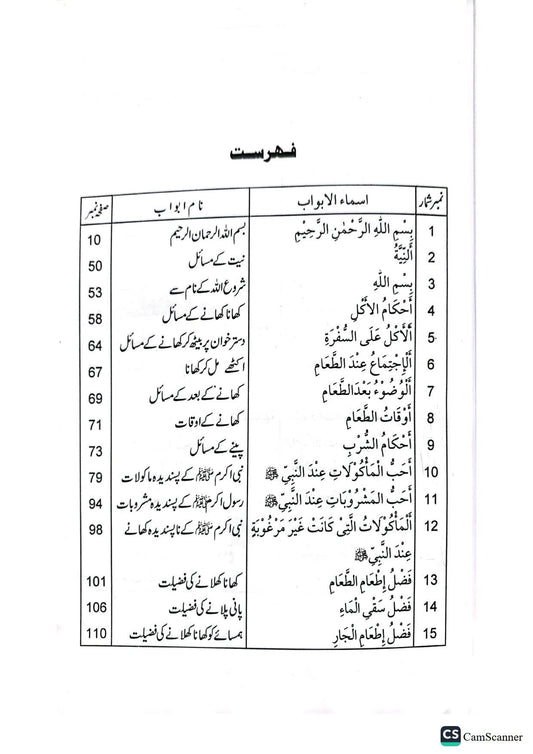 فہرست
نمبر شمار اسماء الابواب نام ابواب صفحہ نمبر
1 بِسْمِ اللّٰهِ الرَّحْمٰنِ الرَّحِيْمِ بسم اللہ الرحمان الرحیم 10
2 اَلنِّيَّةُ نیت کے مسائل 50
3 بِسْمِ اللّٰهِ شروع اللہ کے نام سے 53
4 أَحْكَامُ الْأَكْلِ کھانا کھانے کے مسائل 58
5 اَلْأَكْلُ عَلَى السُّفْرَةِ دستر خوان پر بیٹھ کر کھانے کے مسائل 64
6 اَلْإِجْتِمَاعُ عِنْدَ الطَّعَامِ اکٹھے مل کر کھانا 67
7 اَلْوُضُوْءُ بَعْدَ الطَّعَامِ کھانے کے بعد کے مسائل 69
8 أَوْقَاتُ الطَّعَامِ کھانے کے اوقات 71
9 أَحْكَامُ الشُّرْبِ پینے کے مسائل 73
10 أَحَبُّ الْمَأْكُوْلَاتِ عِنْدَ النَّبِيِّ ﷺ نبی اکرم ﷺ کے پسندیدہ ماکولات 79
11 أَحَبُّ الْمَشْرُوْبَاتِ عِنْدَ النَّبِيِّ ﷺ رسول اکرم ﷺ کے پسندیدہ مشروبات 94
12 اَلْمَأْكُوْلَاتُ الَّتِيْ كَانَتْ غَيْرَ مَرْغُوْبَةٍ نبی اکرم ﷺ کے ناپسندیدہ کھانے 98
عِنْدَ النَّبِيِّ ﷺ
13 فَضْلُ إِطْعَامِ الطَّعَامِ کھانا کھلانے کی فضیلت 101
14 فَضْلُ سَقْيِ الْمَاءِ پانی پلانے کی فضیلت 106
15 فَضْلُ إِطْعَامِ الْجَارِ ہمسائے کو کھانا کھلانے کی فضیلت 110
CS CamScanner